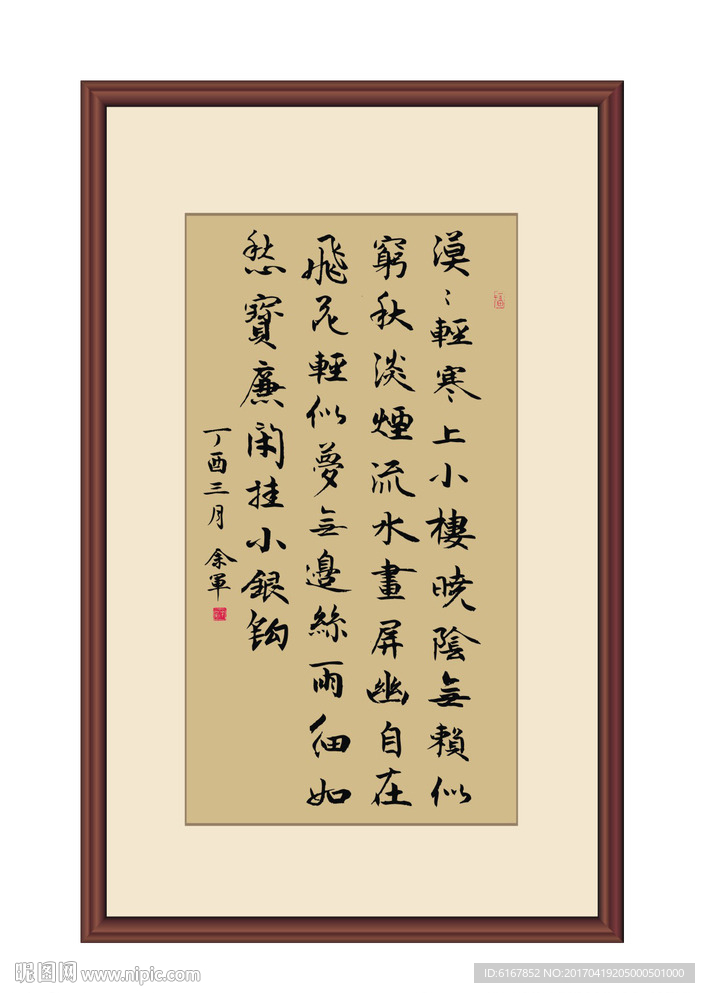 漠〻輕寒上小樓曉陰無賴似
窮秋淡煙流水畫屏幽自在
飛花輕似夢無邊絲雨細如
愁寶廉閑挂小銀鈎
丁酉三月 余軍
昵图网 www.nipic.com
ID:6167852 NO:20170419205000501000